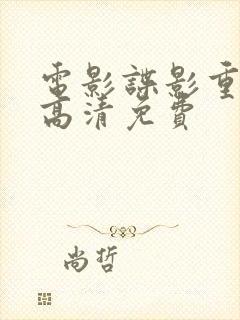 電影諜影重
高清免費
尚哲